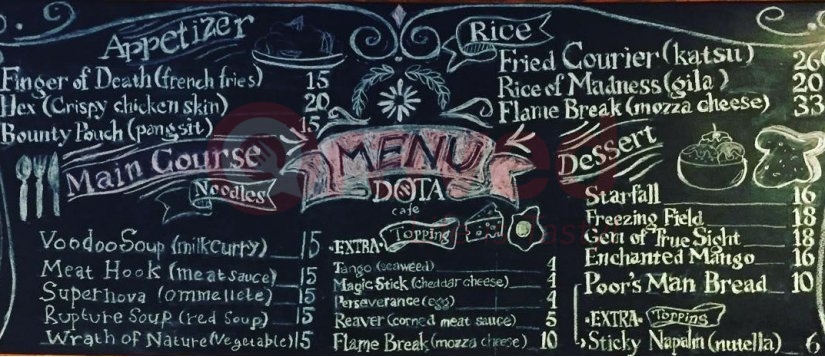 Appetizer
Finger of Death (french fries) 15
Hex (Crispy chicken skin) 20
Bounty Pouch (pangsit) 15
Main Course
Noodles
Voodoo Soup (milk curry) 15
Meat Hook (meat sauce) 15
Supernova (ommellete) 15
Rupture Soup (red soup) 15
Wrath of Nature (Vegetable) 15
MENU
DOTA
cafe
·EXTRA· Topping
Tango (seaweed) 4
Magic Stick (cheddar cheese) 4
Perseverance (egg) 4
Reaver (corned meat sauce) 5
Flame Break (mozza cheese) 10
Rice
Fried Courier (katsu) 26
Rice of Madness (gila) 20
Flame Break (mozza cheese) 33
Dessert
Starfall 16
Freezing Field 18
Gem of True Sight 18
Enchanted Mango 16
Poor's Man Bread 10
·EXTRA· Topping
Sticky Napalm (nutella) 6